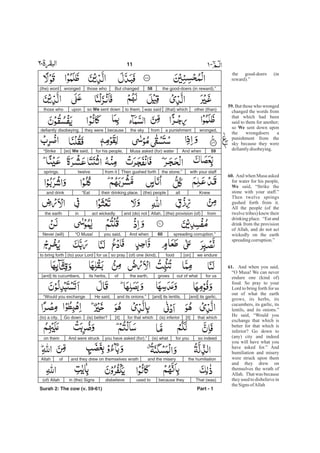 البقرة-٢
11
الم-١
الْمُحْسِنِينَ ٥٨ فَبَدَّلَ الَّذِينَ ظَلَمُوا قَوْلًا
the good-doers (in reward)." 58 But changed those who wronged (the) word
غَيْرَ الَّذِي قِيلَ لَهُمْ فَأَنزَلْنَا عَلَى الَّذِينَ
other (than) (that) which was said to them; so We sent down upon those who
ظَلَمُوا رِجْزًا مِّنَ السَّمَاءِ بِمَا كَانُوا يَفْسُقُونَ
wronged, a punishment from the sky because they were defiantly disobeying.
٥٩ وَإِذِ اسْتَسْقَىٰ مُوسَىٰ لِقَوْمِهِ فَقُلْنَا اضْرِب
59 And when asked (for) water Musa for his people, [so] We said, "Strike
بِّعَصَاكَ الْحَجَرَ فَانفَجَرَتْ مِنْهُ اثْنَتَا عَشْرَةَ عَيْنًا
with your staff the stone." Then gushed forth from it twelve springs.
قَدْ عَلِمَ كُلُّ أُنَاسٍ مَّشْرَبَهُمْ كُلُوا وَاشْرَبُوا
Knew all (the) people their drinking place. "Eat and drink
مِن رِّزْقِ اللَّهِ وَلَا تَعْثَوْا فِي الْأَرْضِ
from (the) provision (of) Allah, and (do) not act wickedly in the earth
مُفْسِدِينَ ٦٠ وَإِذْ قُلْتُمْ يَا مُوسَىٰ لَن
spreading corruption." 60 And when you said, "O Musa! Never (will)
نَّصْبِرَ عَلَىٰ طَعَامٍ وَاحِدٍ فَادْعُ لَنَا رَبَّكَ يُخْرِجْ
we endure [on] food (of) one (kind), so pray for us (to) your Lord to bring forth
لَنَا مِمَّا تُنبِتُ الْأَرْضُ مِن بَقْلِهَا وَقِثَّائِهَا
for us out of what grows the earth, of its herbs, [and] its cucumbers,
وَفُومِهَا وَعَدَسِهَا وَبَصَلِهَا قَالَ أَتَسْتَبْدِلُونَ
[and] its garlic, [and] its lentils, and its onions." He said, "Would you exchange
الَّذِي هُوَ أَدْنَىٰ بِالَّذِي هُوَ خَيْرٌ اهْبِطُوا مِصْرًا
that which [it] (is) inferior for that which [it] (is) better? Go down (to) a city,
فَإِنَّ لَكُم مَّا سَأَلْتُمْ وَضُرِبَتْ عَلَيْهِمُ
so indeed for you (is) what you have asked (for)." And were struck on them
الذِّلَّةُ وَالْمَسْكَنَةُ وَبَاءُوا بِغَضَبٍ مِّنَ اللَّهِ
the humiliation and the misery and they drew on themselves wrath of Allah
ذَٰلِكَ بِأَنَّهُمْ كَانُوا يَكْفُرُونَ بِآيَاتِ اللَّهِ
That (was) because they used to disbelieve in (the) Signs (of) Allah
the good-doers (in
reward)."
59. But those who wronged
changed the words from
that which had been
said to them for another;
so We sent down upon
the wrongdoers a
punishment from the
sky because they were
defiantly disobeying.
60. And when Musa asked
for water for his people,
We said, "Strike the
stone with your staff."
Then twelve springs
gushed forth from it.
All the people (of the
twelve tribes) knew their
drinking place. "Eat and
drink from the provision
of Allah, and do not act
wickedly on the earth
spreading corruption."
61. And when you said,
"O Musa! We can never
endure one (kind of)
food. So pray to your
Lord to bring forth for us
out of what the earth
grows, its herbs, its
cucumbers, its garlic, its
lentils, and its onions."
He said, "Would you
exchange that which is
better for that which is
inferior? Go down to
(any) city and indeed
you will have what you
have asked for." And
humiliation and misery
were struck upon them
and they drew on
themselves the wrath of
Allah. That was because
they used to disbelieve in
the Signs of Allah
Surah 2: The cow (v. 59-61)
Part - 1